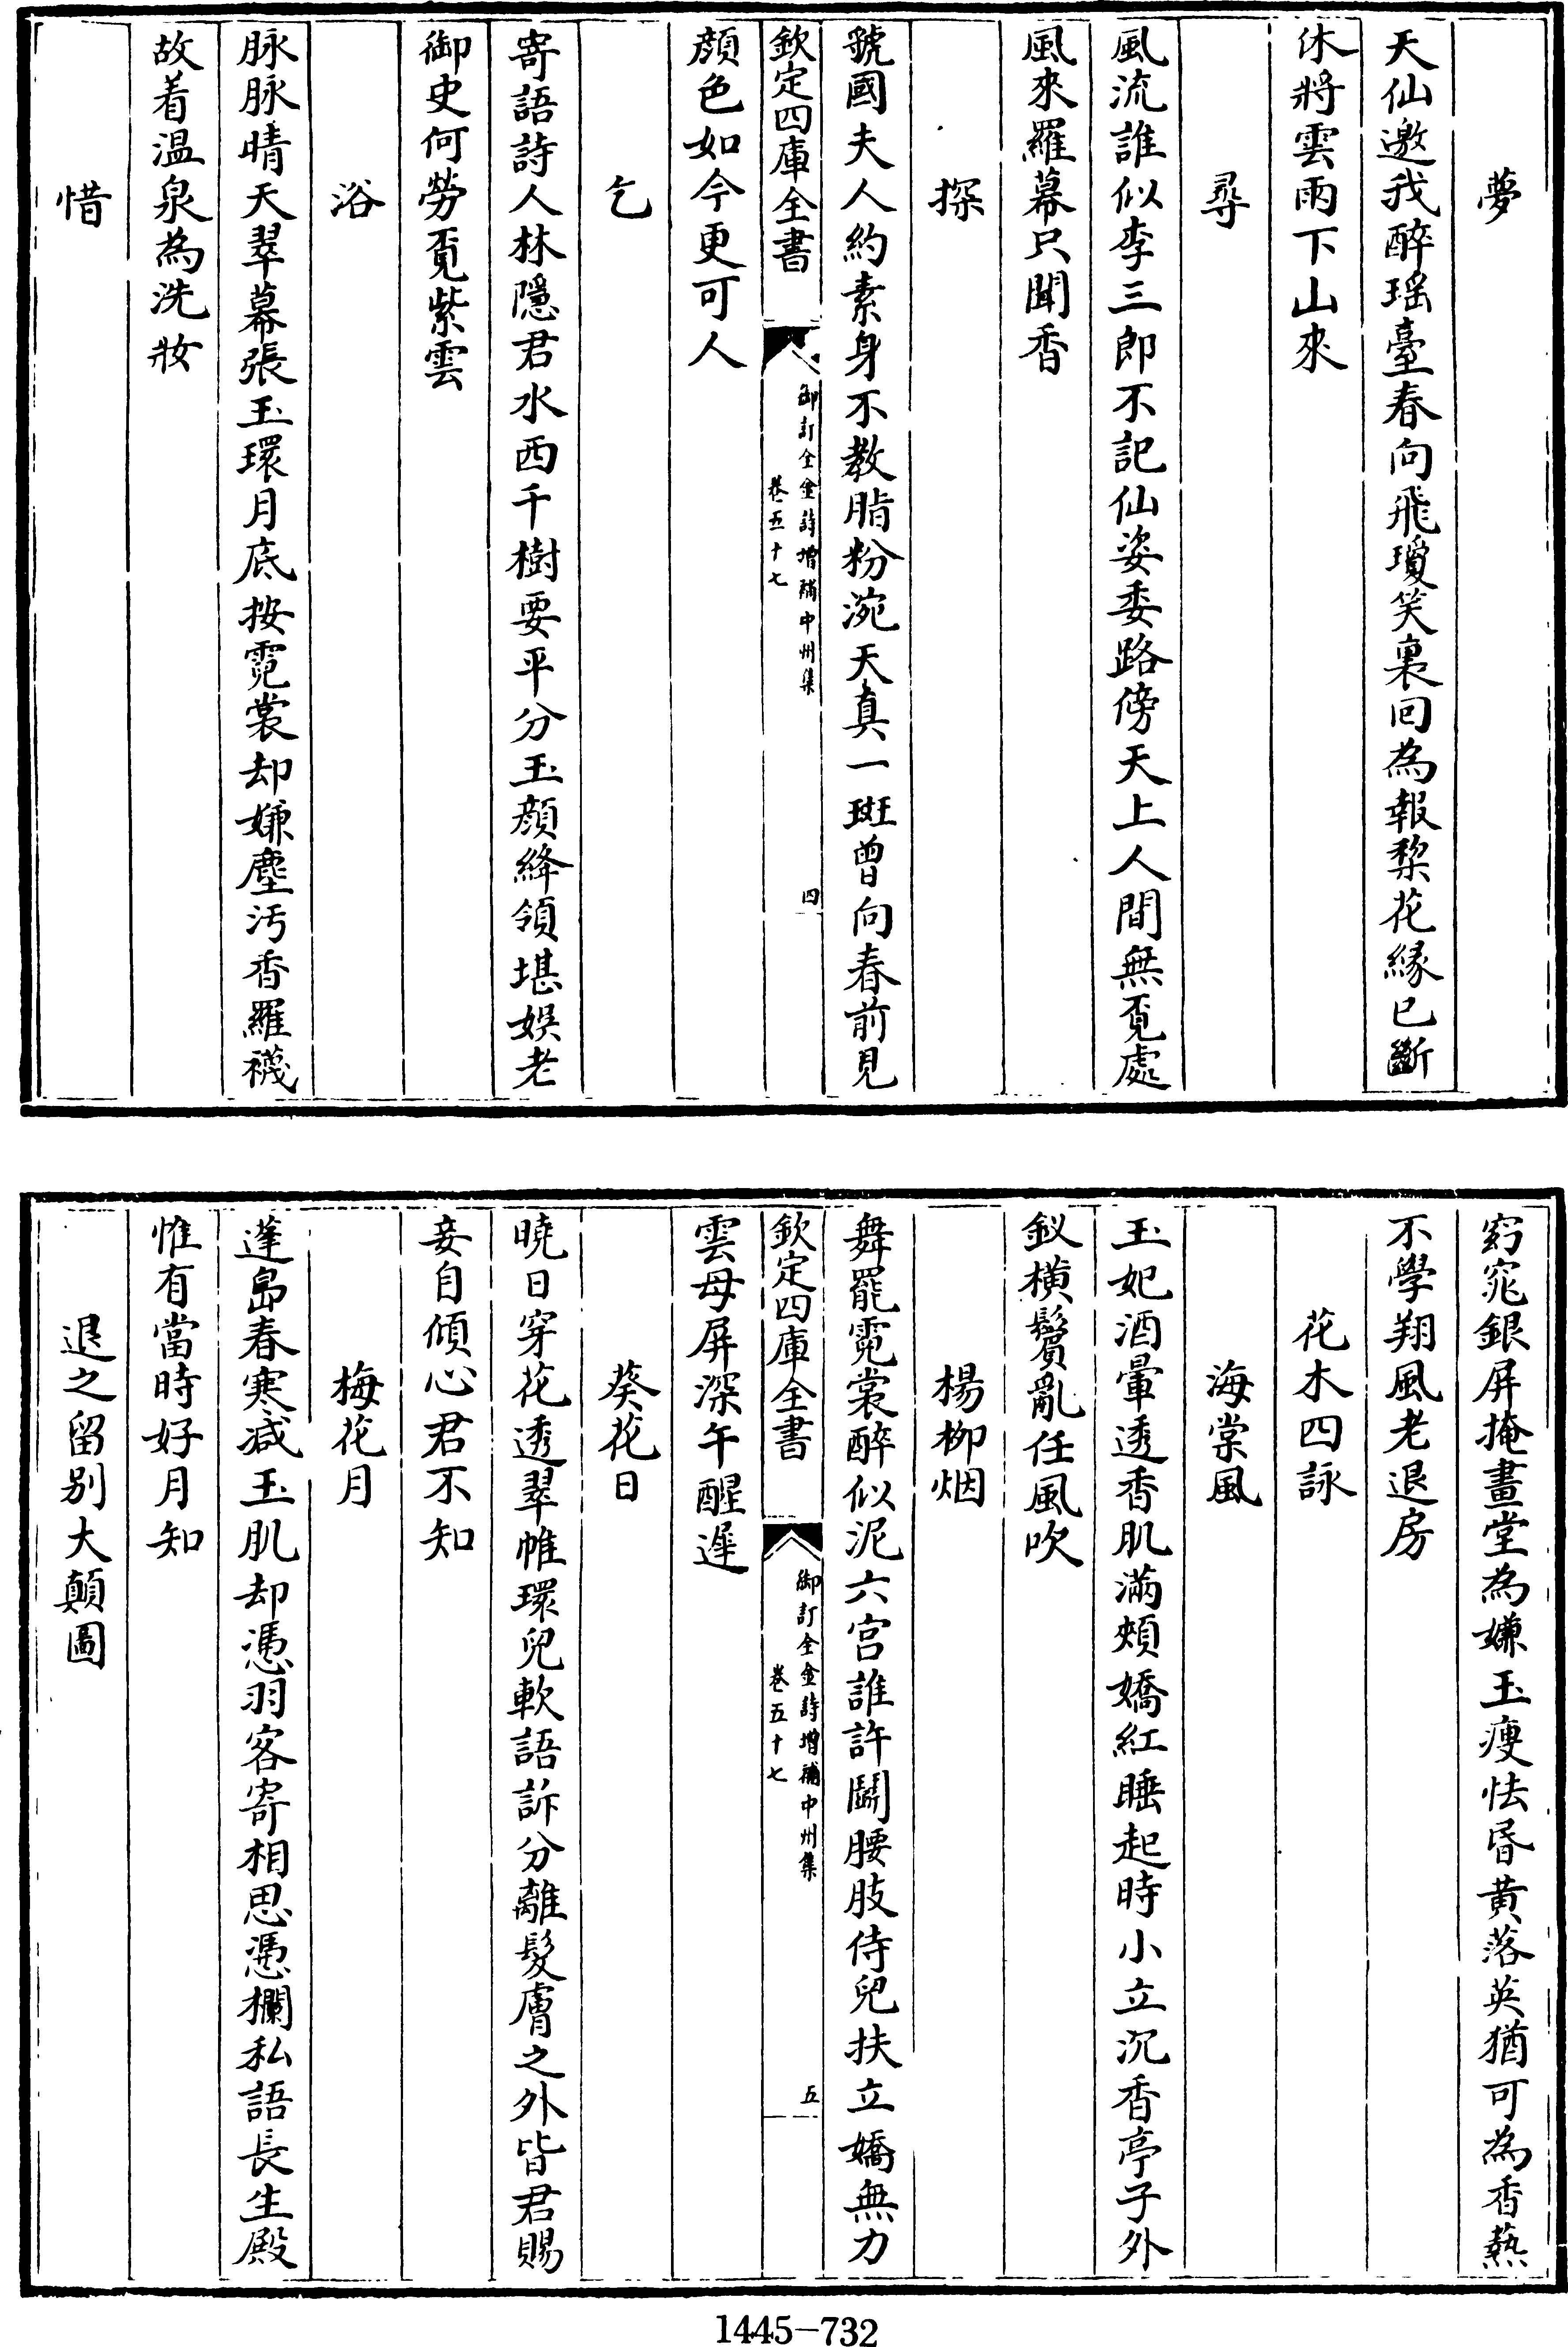 夢
天仙邀我醉瑶臺春向飛瓊笑裏回為報棃花縁已斷
休將雲雨下山來
尋
風流誰似李三郎不記仙姿委路傍天上人間無覔處
風來羅幕只聞香
探
虢國夫人約素身不教脂粉涴天真一斑曾向春前見
欽定四庫全書
御訂全金詩増補中州集
卷五十七
四
顔色如今更可人
乞
寄語詩人林隱君水西千樹要平分玉顔絳領堪娱老
御史何勞覔紫雲
浴
脉脉晴天翠幕張玉環月底按霓裳却嫌塵汚香羅襪
故着温泉為洗妝
惜
窈窕銀屏掩畫堂為嫌玉瘦怯昏黄落英猶可為香爇
不學翔風老退房
花木四詠
海棠風
玉妃酒暈透香肌滿頰嬌紅睡起時小立沉香亭子外
釵横鬢亂任風吹
楊柳烟
舞罷霓裳醉似泥六宫誰許鬭腰肢侍兒扶立嬌無力
欽定四庫全書
御訂全金詩増補中州集
卷五十七
五
雲母屏深午醒遲
葵花日
曉日穿花透翠帷環兒軟語訴分離髮膚之外皆君賜
妾自傾心君不知
梅花月
蓬島春寒减玉肌却憑羽客寄相思憑欄私語長生殿
惟有當時好月知
退之留别大顛圖
1445-732